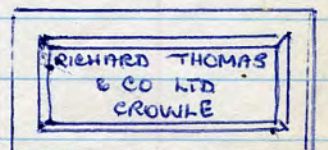 RICHARD THOMAS
& CO LTD
CROWLE